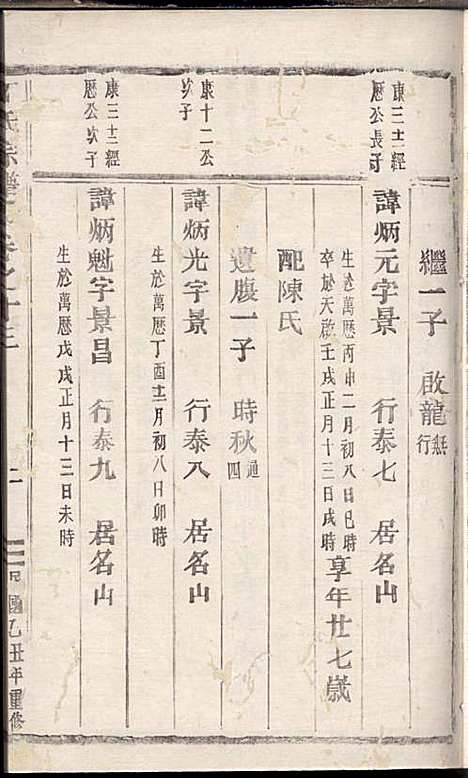 繼一子 啟龍無行
康三十二經
歷公長子
諱炳元字景 行泰七 居名山
生於萬曆丙申二月初八日巳時
卒於天啟壬戌正月十三日戌時享年廿七歲
配陳氏
遺腹一子 時秋通四
康十二公
次子
諱炳光字景 行泰八 居名山
生於萬曆丁酉十一月初八日卯時
康三十二經
歷公次子
諱炳魁字景昌 行泰九 居名山
生於萬曆戊戌正月十三日未時
氏宗譜 卷之十三 二 民國乙丑年重修